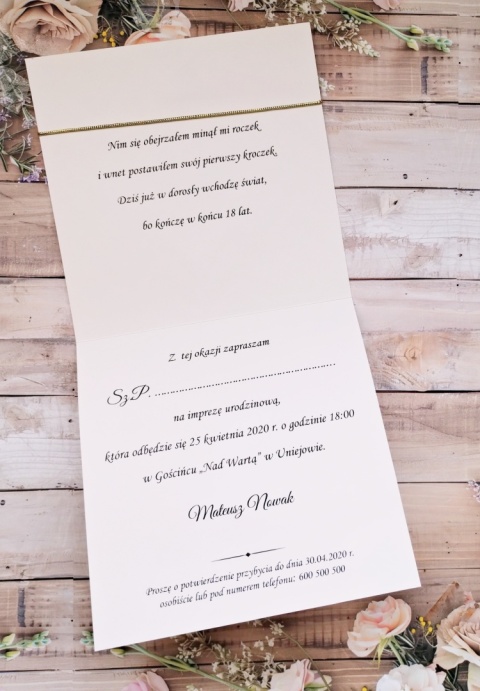 Nim się obejrzałem minął mi roczek
i wnet postawiłem swój pierwszy kroczek.
Dziś już w dorosły wchodzę świat,
bo kończę w końcu 18 lat.
Z tej okazji zapraszam
Sz.P. ............................................................
na imprezę urodzinową,
która odbędzie się 25 kwietnia 2020 r. o godzinie 18:00
w Gościńcu „Nad Wartą” w Uniejowie.
Mateusz Nowak
Proszę o potwierdzenie przybycia do dnia 30.04.2020 r.
osobiście lub pod numerem telefonu: 600 500 500